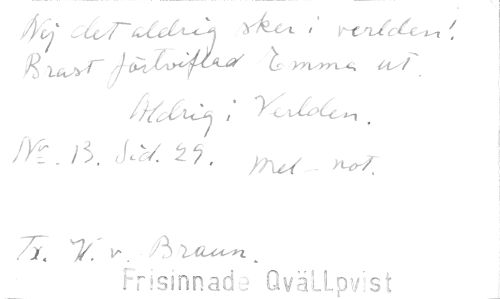 Nej det aldrig sker i verlden!
Brast förtviflad Emma ut.
Aldrig i Verlden.
No. 13. Sid. 29.
Mel-not.
Tx. W. v. Braun.
Frisinnade QvälLpvist